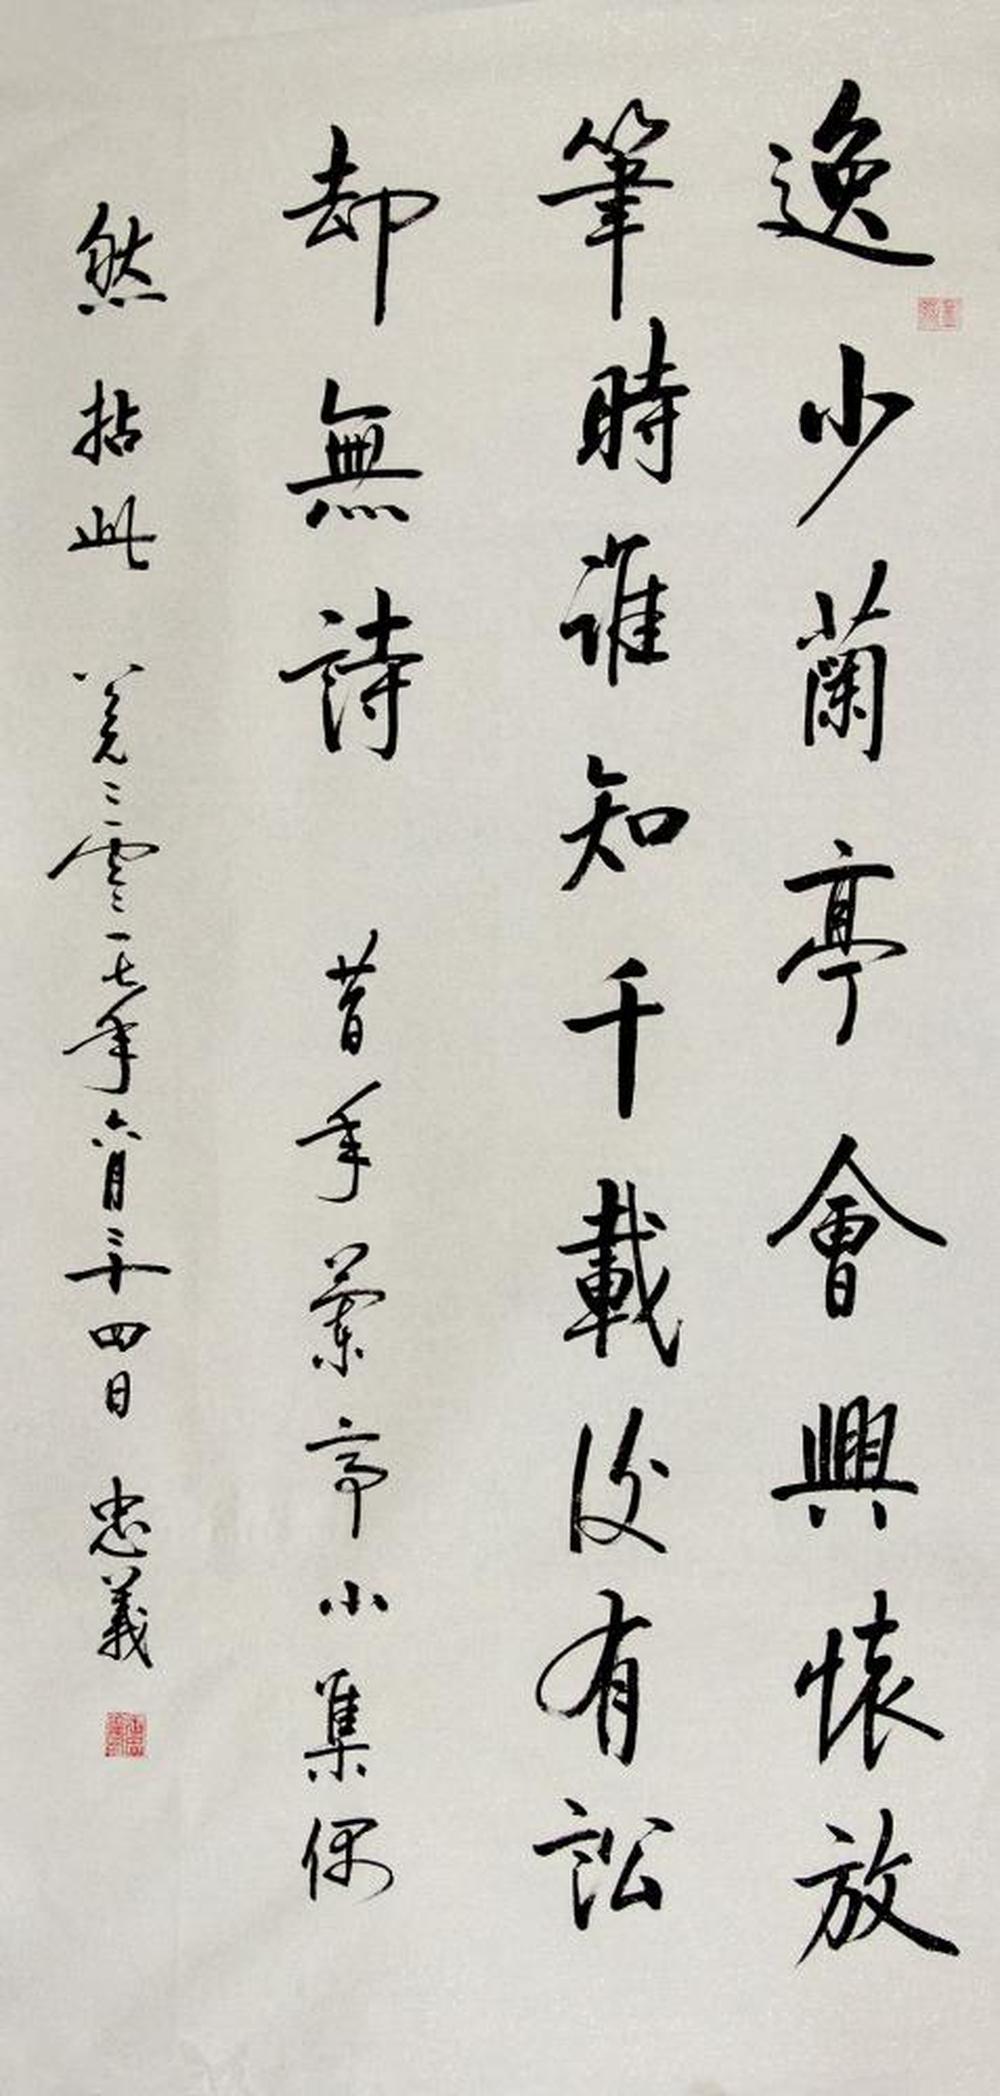 逸少蘭亭會興懷放
筆時誰知千載後有訟
却無詩 昔年蘭亭小集偶
然拈此 二零一七年六月二十四日 忠義